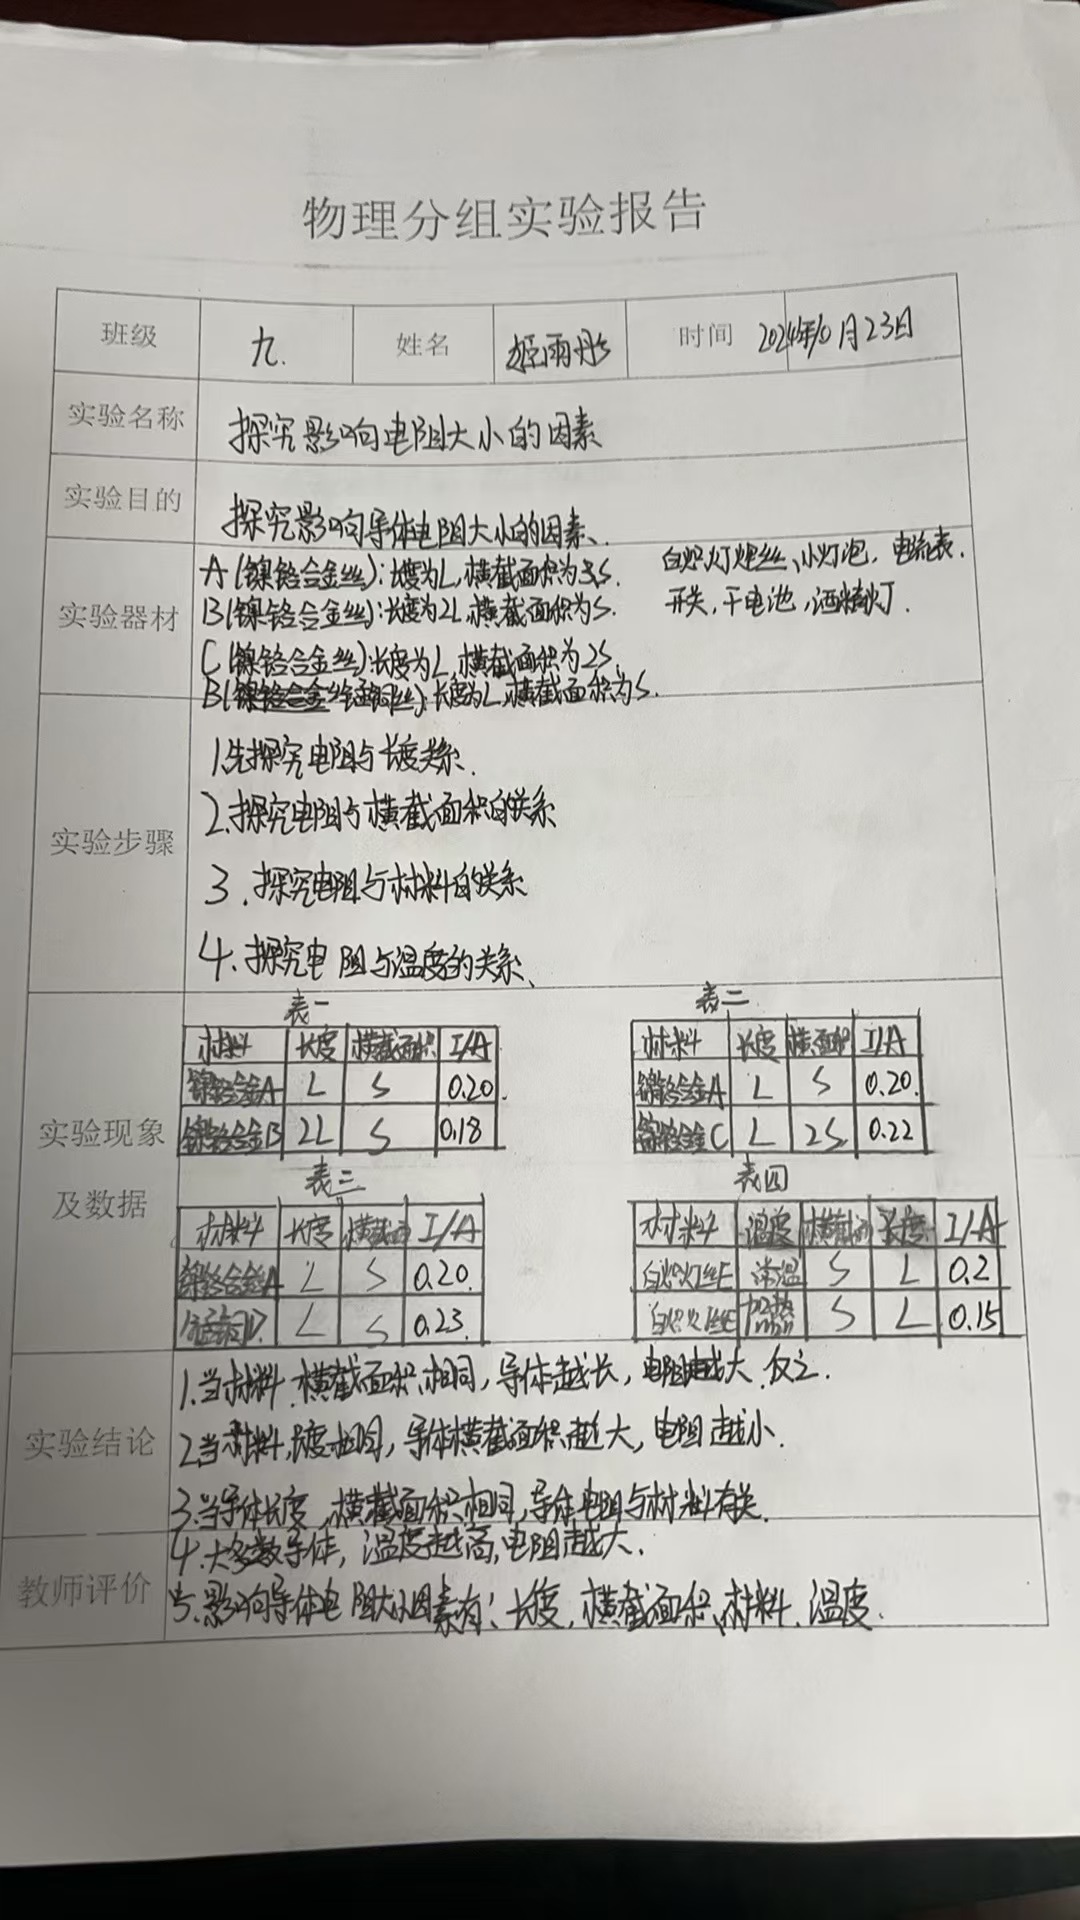 物理分组实验报告
班级 九. 姓名 姬雨彤 时间 2024年10月23日
实验名称 探究影响电阻大小的因素
实验目的 探究影响导体电阻大小的因素.
实验器材
A(镍铬合金丝):长度为L,横截面积为S.
B(镍铬合金丝):长度为2L,横截面积为S.
C(镍铬合金丝)长度为L,横截面积为2S.
白炽灯炮丝、小灯泡,电流表.
开关,干电池,酒精灯.
长度为L,横截面积为S.
实验步骤
1.先探究电阻与长度关系.
2.探究电阻与横截面积的关系
3.探究电阻与材料的关系
4.探究电阻与温度的关系、
实验现象及数据
表一
材料 长度 横截面积 I/A
镍铬合金A L S 0.20
镍铬合金B 2L S 0.18
表二
材料 长度 横截面积 I/A
镍铬合金A L S 0.20
镍铬合金C L 2S 0.22
表三
材料 长度 横截面 I/A
镍铬合金A L S 0.20
L S 0.23
表四
材料 温度 横截面 长度 I/A
白炽灯丝E 常温 S L 0.2
白炽灯丝E 加热 S L 0.15
实验结论
1.当材料、横截面积相同,导体越长,电阻越大.反之.
2.当材料,长度相同,导体横截面积越大,电阻越小.
3.当导体长度,横截面积相同,导体电阻与材料有关.
4.大多数导体,温度越高,电阻越大.
教师评价
5.影响导体电阻大小因素有:长度,横截面积、材料、温度.